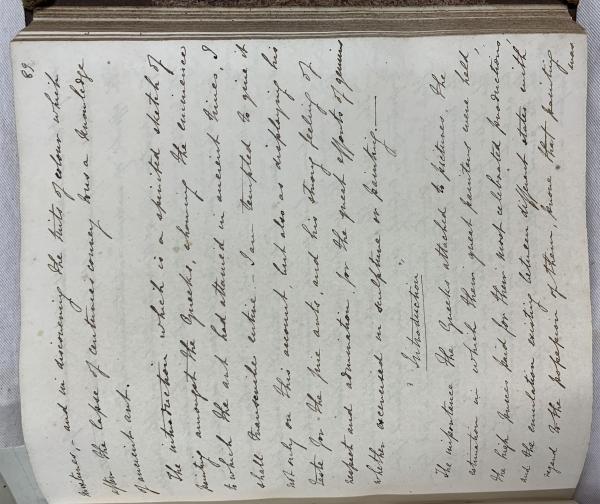 89.
pictures, – and in discovering the tints of colour which
after the lapse of centuries convey to us a knowledge
of ancient art.
The introduction which is a spirited sketch of
painting amongst the Greeks, shewing the eminence
to which the art had attained in ancient times, I
shall transcribe entire – I am tempted to give it
not only on this account, but also as displaying his
taste for the fine arts, and his strong feeling of
respect and admiration for the great efforts of genius
whether exercised in sculpture or painting. –
"Introduction".
"The importance the Greeks attached to pictures, the
estimation in which their great painters were held,
the high prices paid for their most celebrated productions,
and the emulation existing between different states with
regard to the possession of them, prove that painting
was